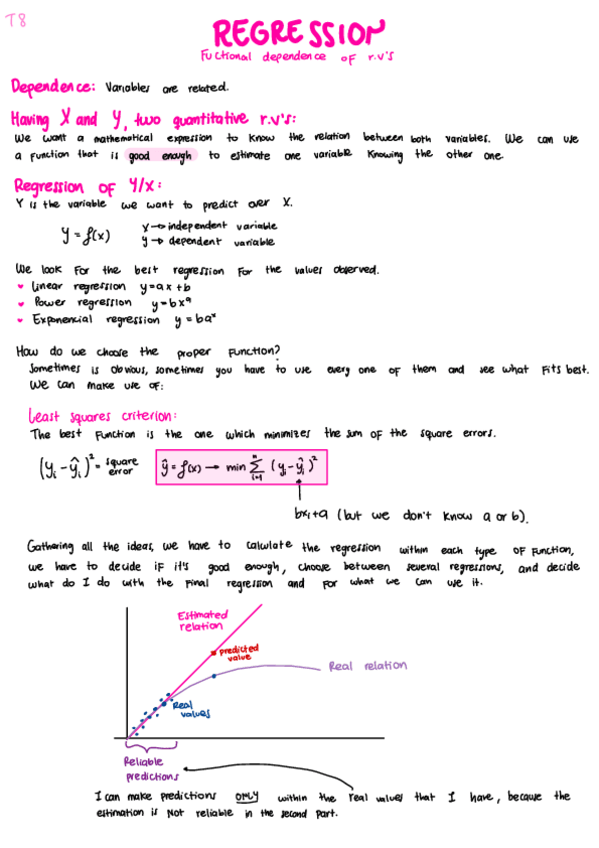 T8
REGRESSION
Fuctional dependence of r.v's
Dependence: Variables are related.
Having X and Y, two quantitative r.v's:
We want a mathematical expression to know the relation between both variables. We can use
a function that is good enough to estimate one variable knowing the other one.
Regression of Y/x:
Y is the variable we want to predict over X.
y = f(x)
x → independent variable
y → dependent variable
We look for the best regression for the values observed.
♥ Linear regression y=ax+b
♥ Power regression y=bxᵃ
♥ Exponencial regression y=baˣ
How do we choose the proper function?
Sometimes is obvious, sometimes you have to use every one of them and see what fits best.
We can make use of:
Least squares criterion:
The best function is the one which minimizes the sum of the square errors.
(yᵢ-ŷᵢ)² = square error
ŷ = f(x) → min Σⁿᵢ₌₁ (yᵢ-ŷᵢ)²
bxᵢ+a (but we don't know a or b).
Gathering all the ideas, we have to calculate the regression within each type of function,
we have to decide if it's good enough, choose between several regressions, and decide
what do I do with the final regression and for what we can use it.
Estimated
relation
predicted
value
Real relation
Real
values
Reliable
predictions
I can make predictions ONLY within the real values that I have, because the
estimation is not reliable in the second part.